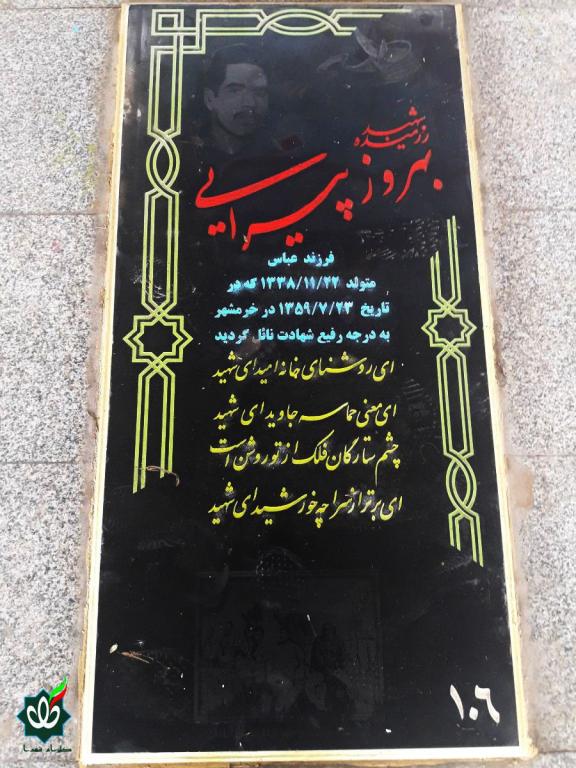 شهید
رزمنده
بهروز پیرایی
فرزند عباس
متولد ۱۳۳۸/۱۱/۲۴ که در
تاریخ ۱۳۵۹/۷/۲۳ در خرمشهر
به درجه رفیع شهادت نائل گردید
ای روشنای خانه امید ای شهید
ای معنی حماسه جاوید ای شهید
چشم ستارگان فلک از تو روشن است
ای برتر از سراچه خورشید ای شهید
۱۰۶